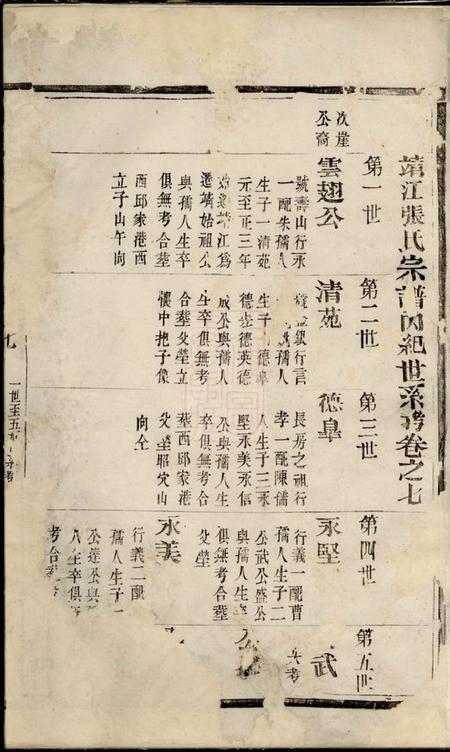 靖江張氏宗譜内紀世系考卷之七
第一世
第二世
第三世
第四世
第五世
次崖
公裔
雲翅公
號壽山行永
一配朱孺人
生子一清苑
元至正三年
遷靖江爲
遷靖始祖公
與孺人生卒
俱無考合葬
西邱家港西
立子山午向
清苑
銀行言
孺人
生子德皐
德步德英德
成公與孺人
生卒俱無考
合葬父塋立
懷中抱子像
德皐
長房之祖行
孝一配陳孺
人生子三永
堅永美永信
公與孺人生
卒俱無考合
葬西邱家港
父塋昭穴山
向仝
永堅
行義一配曹
孺人生子二
公武公盛公
與孺人生
俱無考合葬
父塋
永美
行義二配
孺人生子一
公達公與
人生卒俱
考合葬
武
考
一世至五世